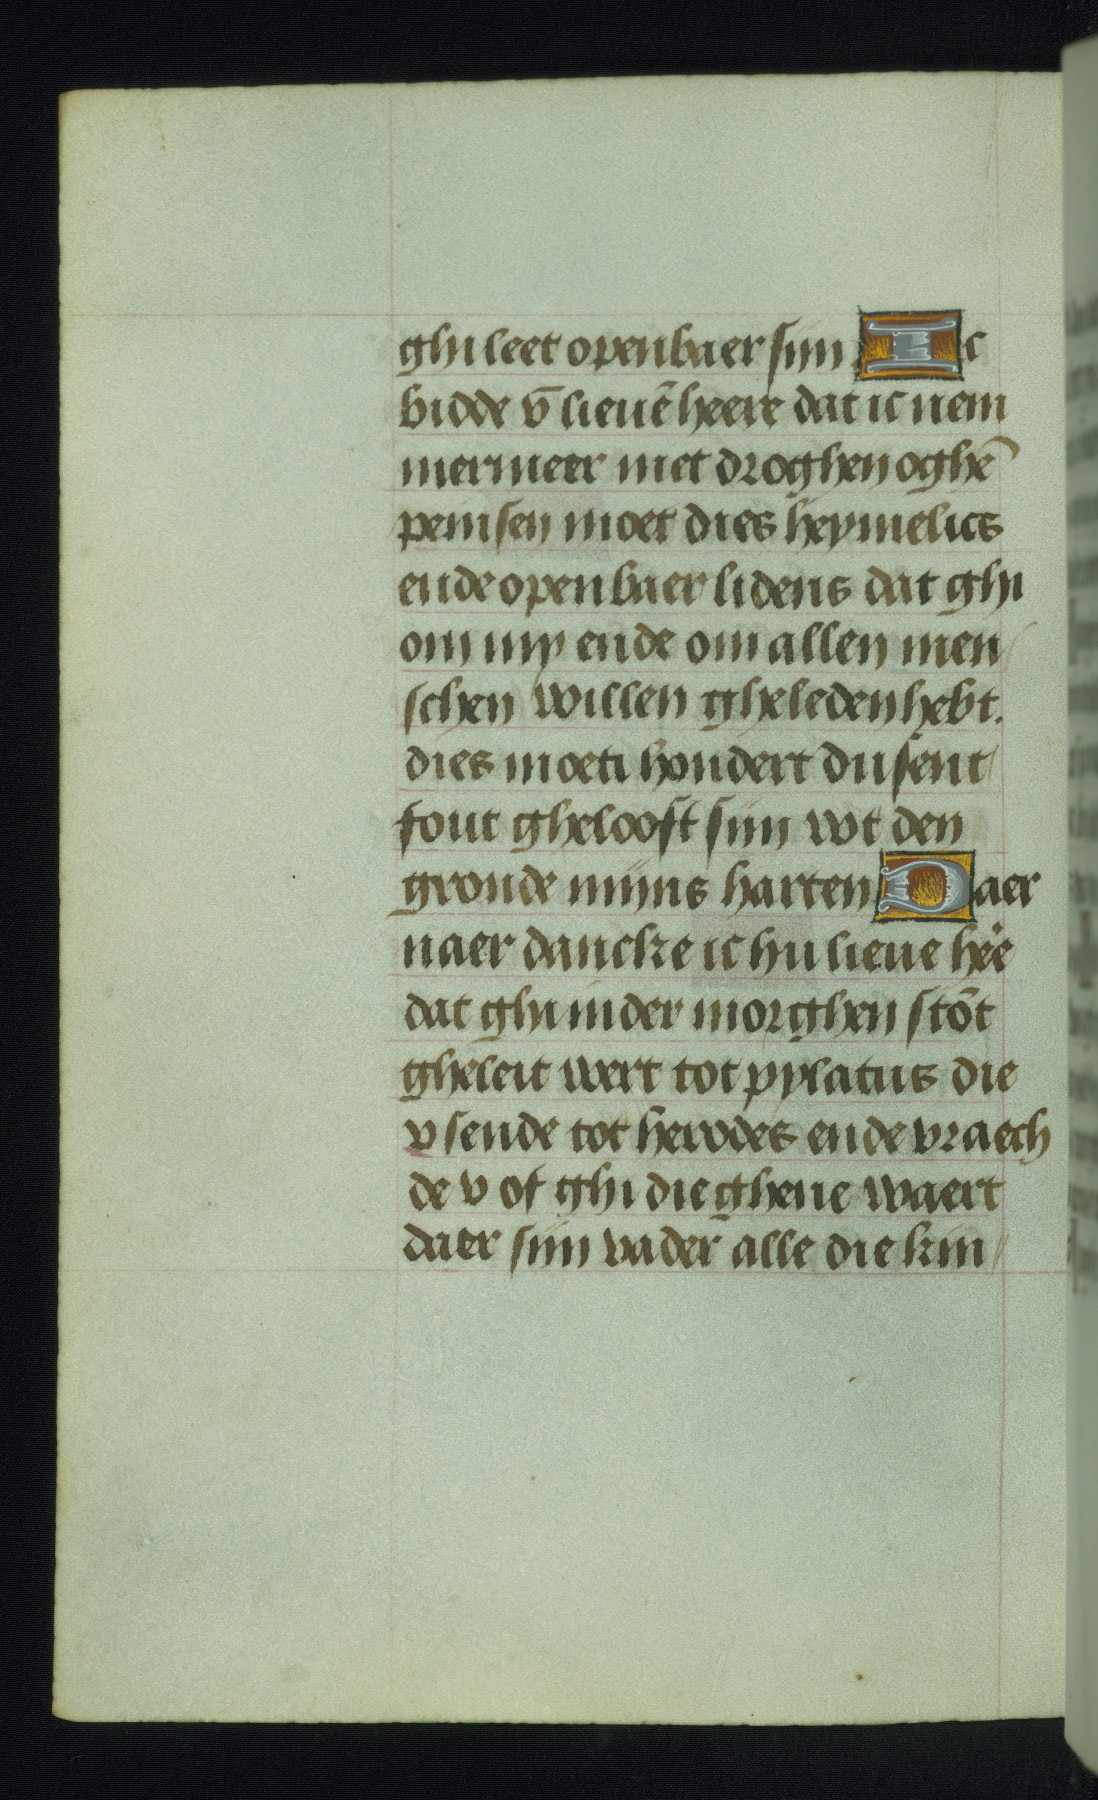 ghi leet openbaer sijn Ic
bidde v̄ lieuē heere dat ic nem
mermeer met droghen oghē
peinsen moet dies heymelics
ende openbaer lidens dat ghi
om my ende om allen men/
schen willen gheleden hebt.
dies moeti hondert dusent/
fout ghelooft sijn wt den
gronde mijns harten Daer
naer dancke ic hu lieue hēe
dat ghi in der morghen stōt
gheleit wert tot pylatus die
v sende tot herodes ende vraech
de v of ghi die ghene waert
daer sijn vader alle die kin//